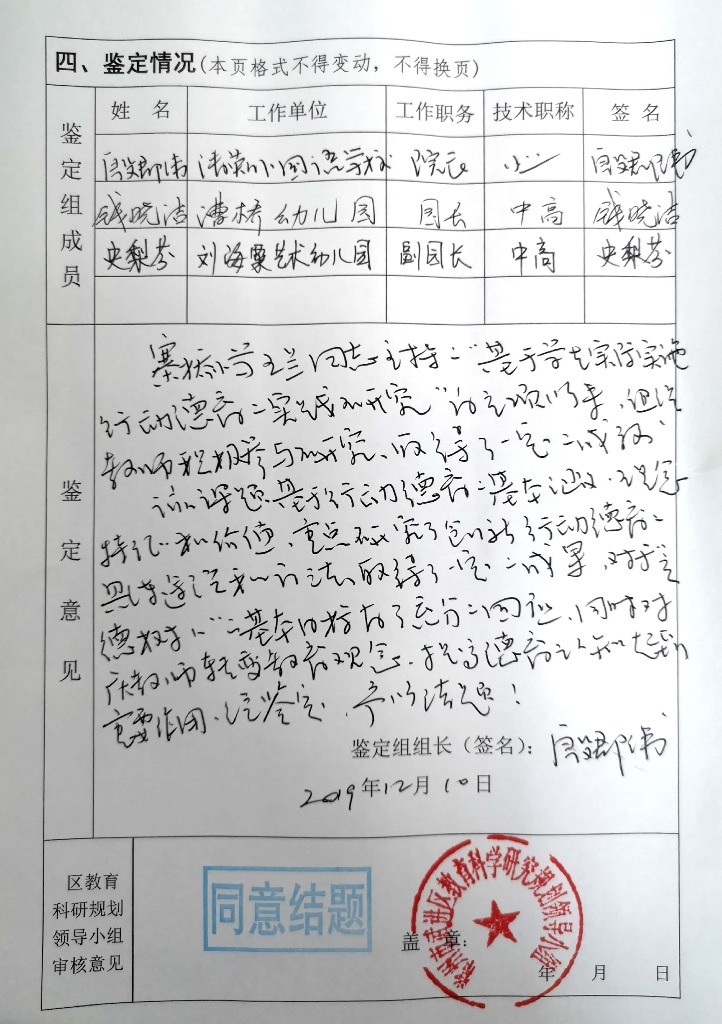 四、鉴定情况(本页格式不得变动,不得换页)
鉴定组成员
姓 名 工作单位 工作职务 技术职称 签 名
小学 院长
钱晓洁 漕桥幼儿园 园长 中高 钱晓洁
史梨芬 刘海粟艺术幼儿园 副园长 中高 史梨芬
鉴定意见
寨桥小学王兰同志主持的“基于学生实际实施
行动德育的实践研究”
教师积极参与研究、取得了一定的成效。
该课题基于行动德育的基本涵义、理念
特征和价值、重点研究了创新行动德育的
具体途径和方法,取得了一定的成果,对于立
德树人
教师转变教育观念、提高德育认知起到
重要作用。经鉴定,予以结题!
鉴定组组长(签名):
2019年12月10日
区教育
科研规划
领导小组
审核意见
同意结题
常州市武进区教育科学研究规划领导小组
盖 章:
年 月 日